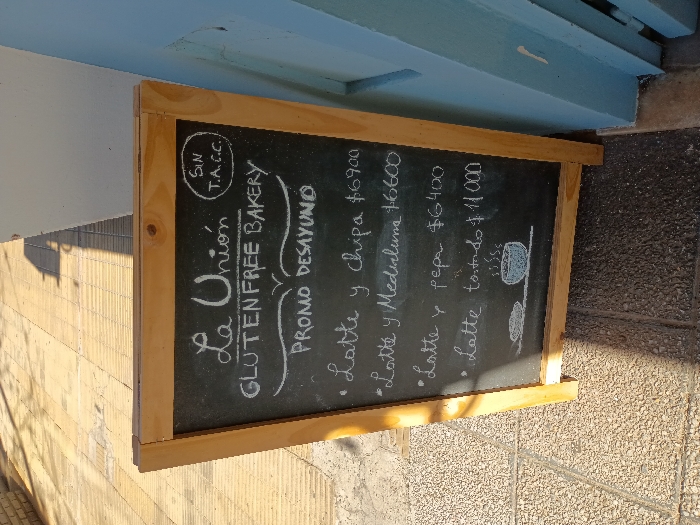 La Unión
SIN
T.A.C.C.
GLUTEN FREE BAKERY
PROMO DESAYUNO
• Latte y chipa $6900
• Latte y Medialuna $6600
• Latte y pepa $6400
• Latte tostado $11000